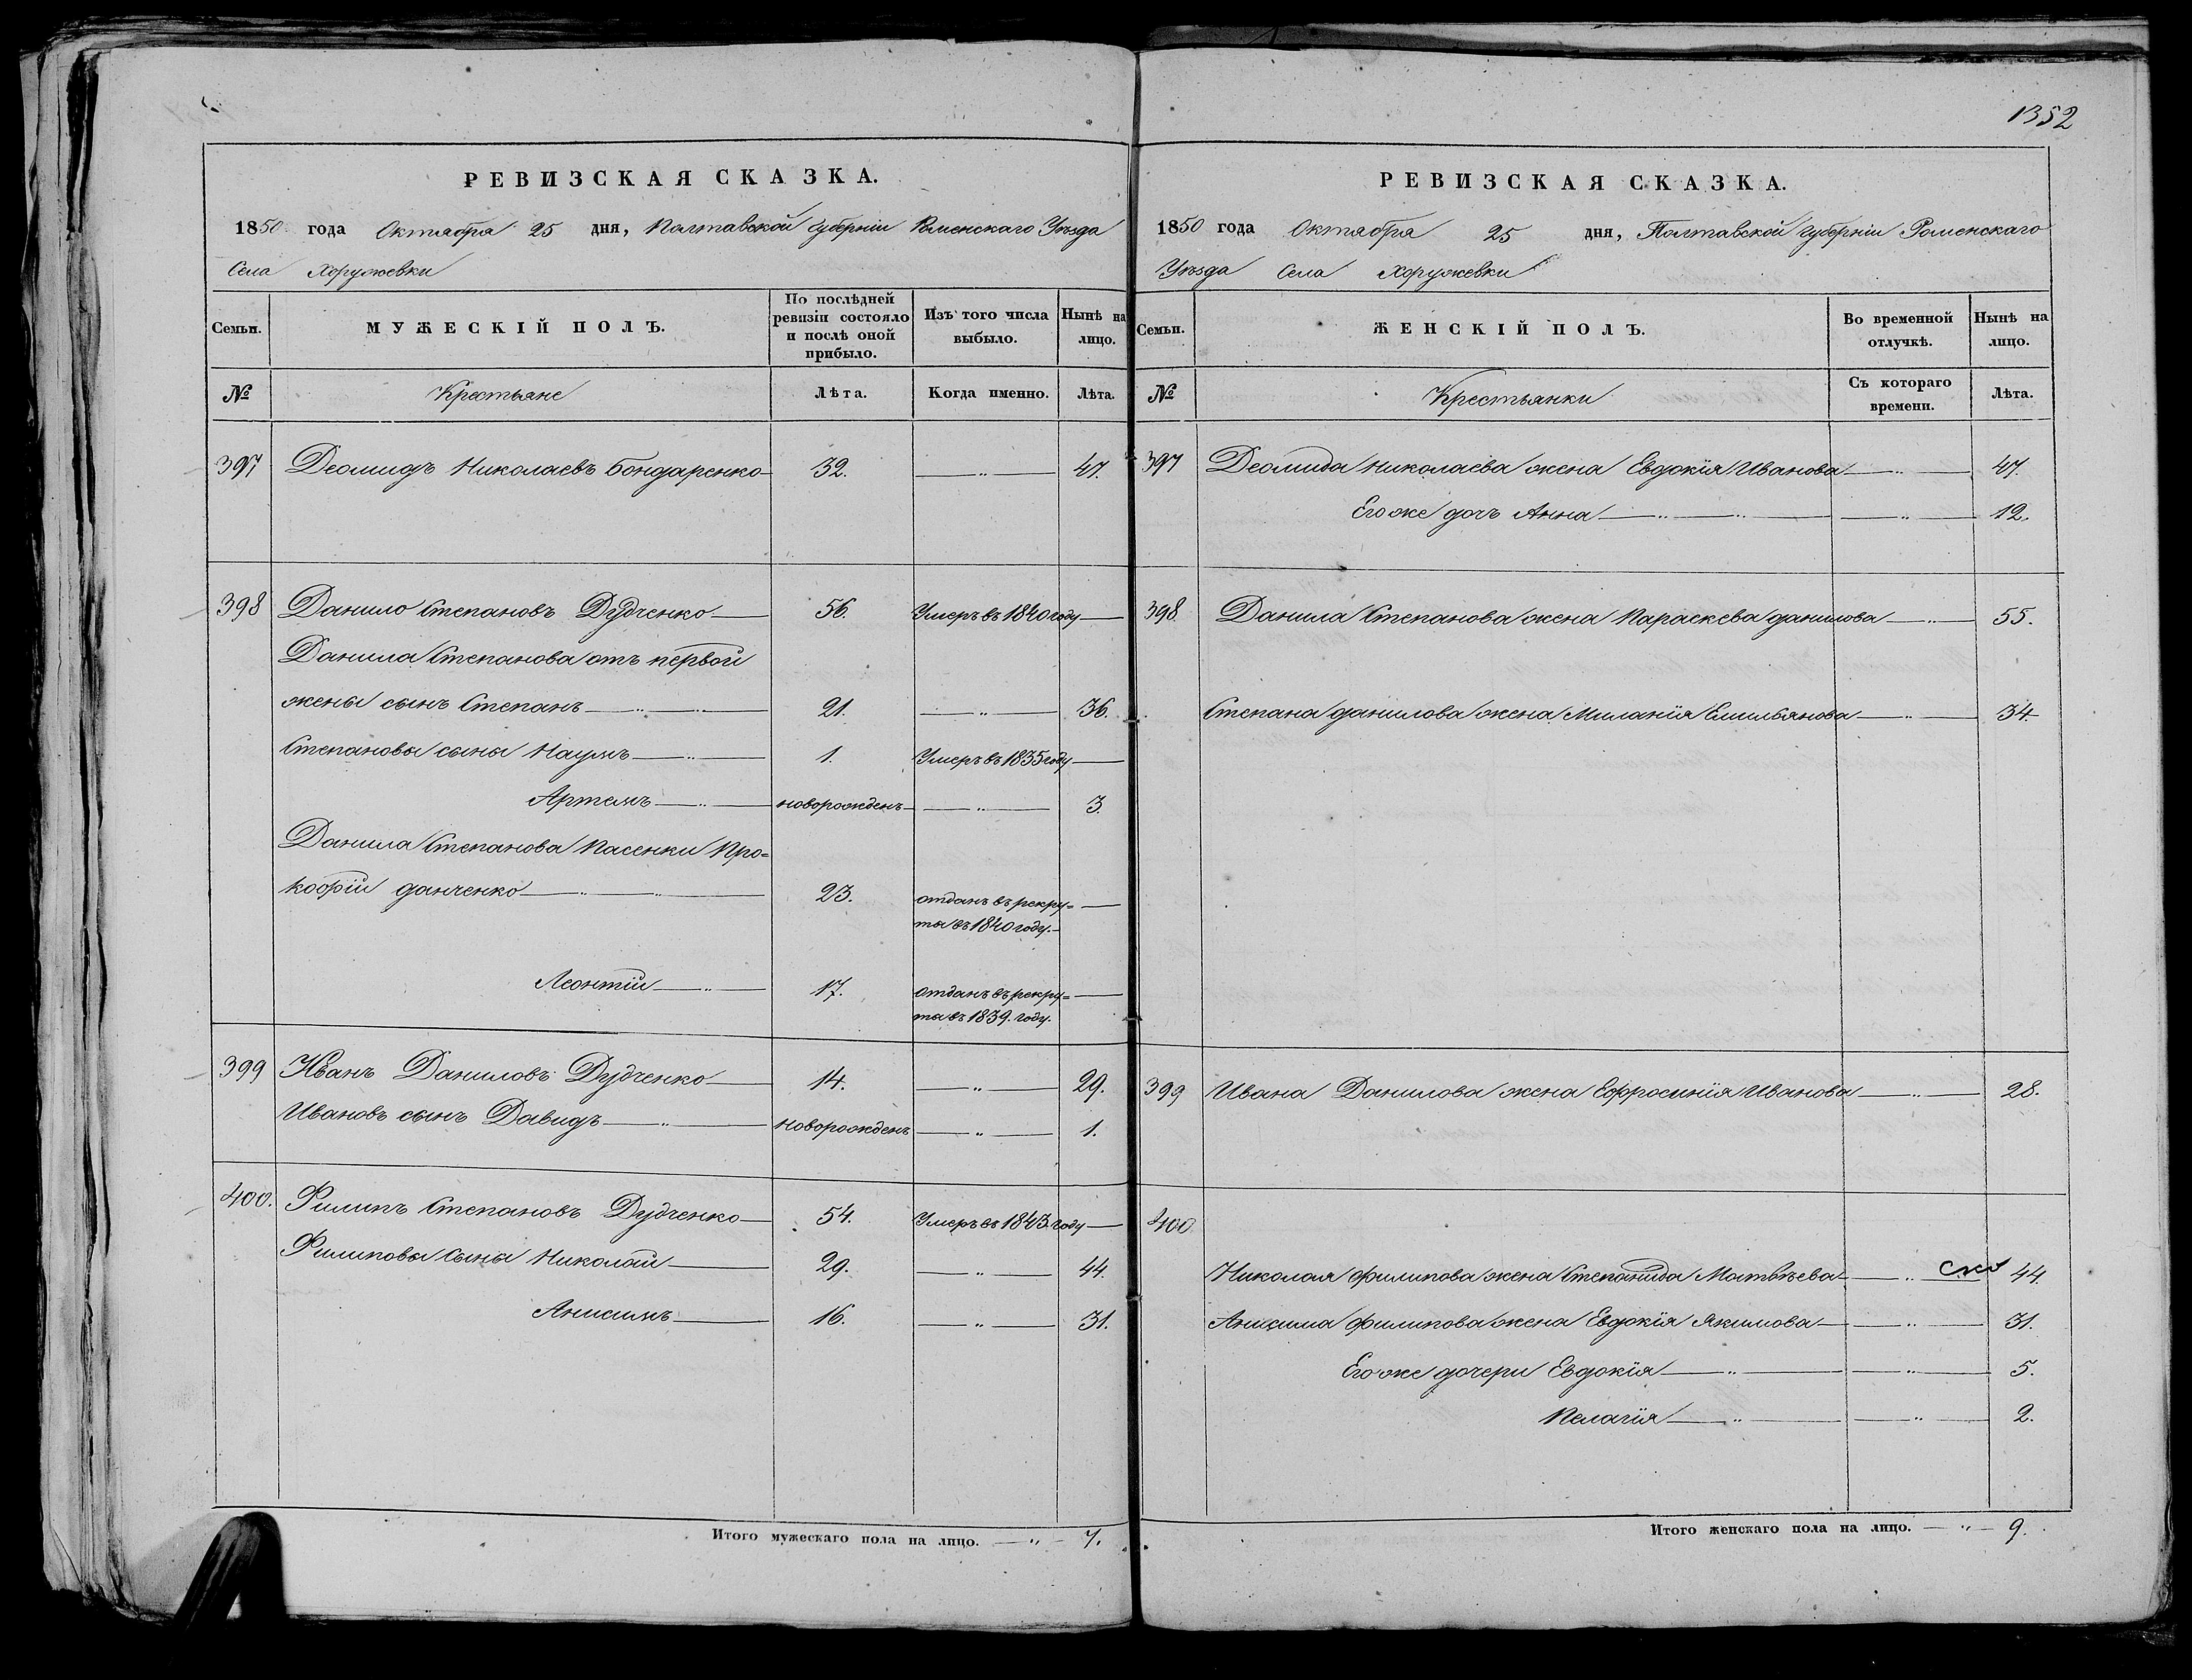 РЕВИЗСКАЯ СКАЗКА.
1850 года Октября 25 дня, Полтавской губерніи Роменскаго Уѣзда
Села Хоружевки
Семьи. МУЖЕСКІЙ ПОЛЪ. По послѣдней ревизіи состояло и послѣ оной прибыло. Изъ того числа выбыло. Нынѣ на лицо.
№ Крестьяне Лѣта. Когда именно. Лѣта.
397 Деомидъ Николаевъ Бондаренко 32. — " — 47.
398 Данило Степановъ Дудченко — 56. Умеръ въ 1840 году —
Данила Степанова отъ первой
жены сынъ Степанъ — " — " — 21. — " — 36.
Степановы сыны Наумъ — " — 1. Умеръ въ 1835 году —
Артемъ — " — новорожденъ — " — 3.
Данила Степанова пасенки Про=
кофій данченко — " — " — 23. отданъ въ рекру= —
ты въ 1840 году. —
Леонтій — " — 17. отданъ въ рекру= —
ты въ 1839. году.
399 Иванъ Даниловъ Дудченко — 14. — " — 29.
Ивановъ сынъ Давидъ — " — новорожденъ — " — 1.
400. Филипъ Степановъ Дудченко — 54. Умеръ въ 1843 году —
Филиповы сыны Николай — 29. — " — 44.
Анисимъ — 16. — " — 31.
Итого мужескаго пола на лицо. — " — 7.
1352
РЕВИЗСКАЯ СКАЗКА.
1850 года Октября 25 дня, Полтавской губерніи Роменскаго
Уѣзда Села Хоружевки
Семьи. ЖЕНСКІЙ ПОЛЪ. Во временной отлучкѣ. Нынѣ на лицо.
№ Крестьянки Съ котораго времени. Лѣта.
397 Деомида Николаева жена Евдокія Иванова — " — 47.
Его же дочь Анна — " — " — — " — 12.
398 Данила Степанова жена Параскева данилова — " — 55.
Степана данилова жена Миланія Емильянова — " — 34
399 Ивана Данилова жена Ефросинія Иванова — " — 28.
400
Николая филипова жена Степанида Матвѣева — " — 44.
Анисима филипова жена Евдокія Якимова — — " — 31.
Его же дочери Евдокія — " — — " — 5.
Пелагія — " — — " — 2.
Итого женскаго пола на лицо. — " — 9.